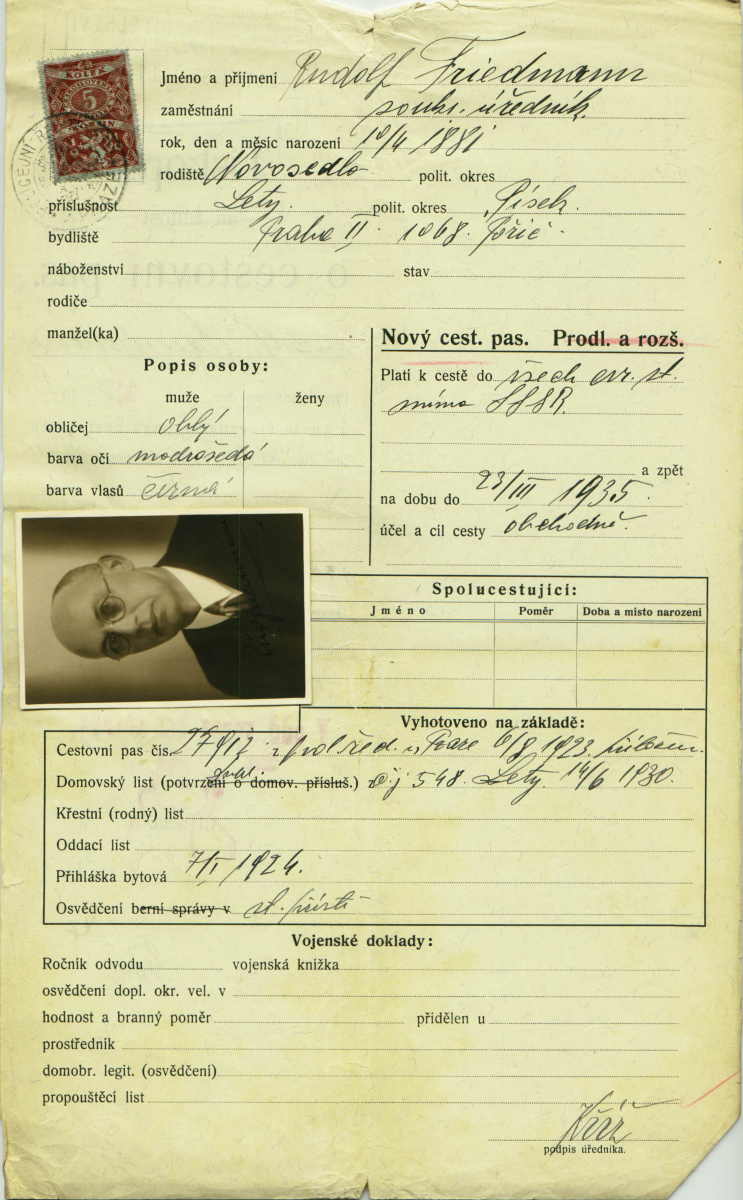 KOLEK
5
Jméno a příjmení Rudolf Friedmann
zaměstnání soukr. úředník.
rok, den a měsíc narození 10/4 1881
rodiště Novosedlo polit. okres
příslušnost Lety. polit. okres Písek.
bydliště Praha II. 1068. Poříč.
náboženství stav
rodiče
manžel(ka)
Nový cest. pas. Prodl. a rozš.
Popis osoby:
muže ženy
obličej oblý
barva očí modrošedá
barva vlasů černá
Platí k cestě do všech evr. st.
mimo SSSR.
a zpět
na dobu do 23/III 1935.
účel a cíl cesty obchodně.
Spolucestující:
Jméno Poměr Doba a místo narození
Vyhotoveno na základě:
Cestovní pas čís. 27917 z pol. řed. v Praze 6/8 1923
Domovský list (potvrzení o domov. přísluš.) čj 548. Lety. 14/6 1930.
Křestní (rodný) list
Oddací list
Přihláška bytová 7/I 1924.
Osvědčení berní správy v st.
Vojenské doklady:
Ročník odvodu vojenská knížka
osvědčení dopl. okr. vel. v
hodnost a branný poměr přidělen u
prostředník
domobr. legit. (osvědčení)
propouštěcí list
Kříž
podpis úředníka.